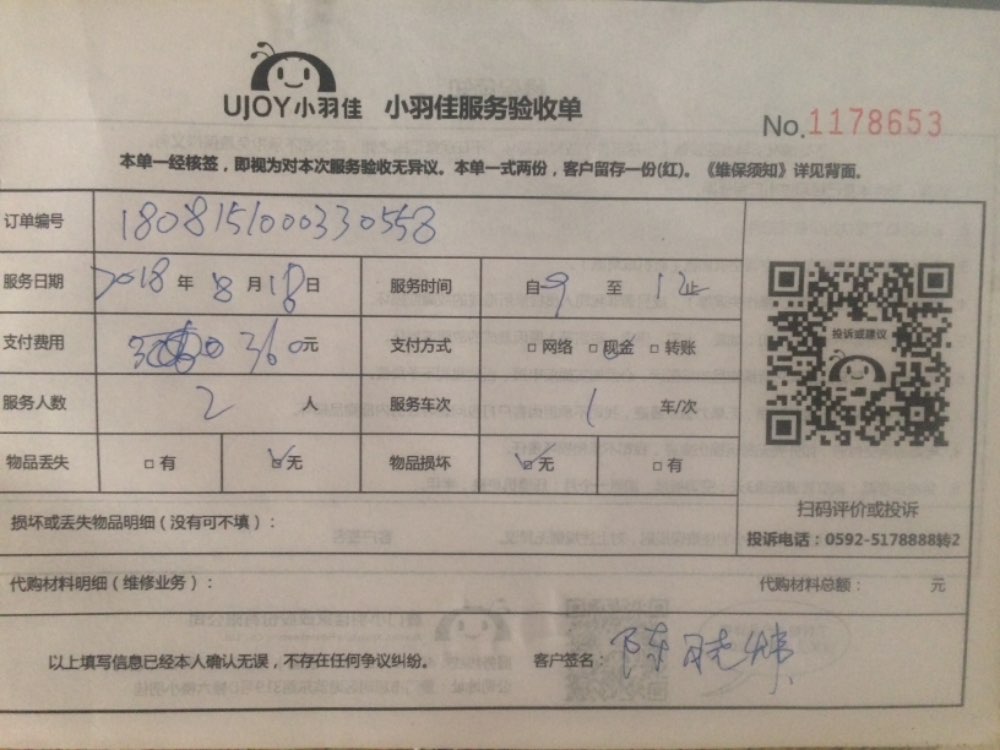 UJOY小羽佳 小羽佳服务验收单
No.1178653
本单一经核签，即视为对本次服务验收无异议。本单一式两份，客户留存一份(红)。《维保须知》详见背面。
订单编号 1808151000330558
服务日期 2018 年 8 月 18 日 服务时间 自 9 至 12 止
支付费用 360元 支付方式 □ 网络 □ 现金 □ 转账
投诉或建议
服务人数 2 人 服务车次 1 车/次
物品丢失 □ 有 ☑ 无 物品损坏 ☑ 无 □ 有
扫码评价或投诉
损坏或丢失物品明细（没有可不填）：
投诉电话：0592-5178888转2
代购材料明细（维修业务）： 代购材料总额： 元
以上填写信息已经本人确认无误，不存在任何争议纠纷。 客户签名：陈晓